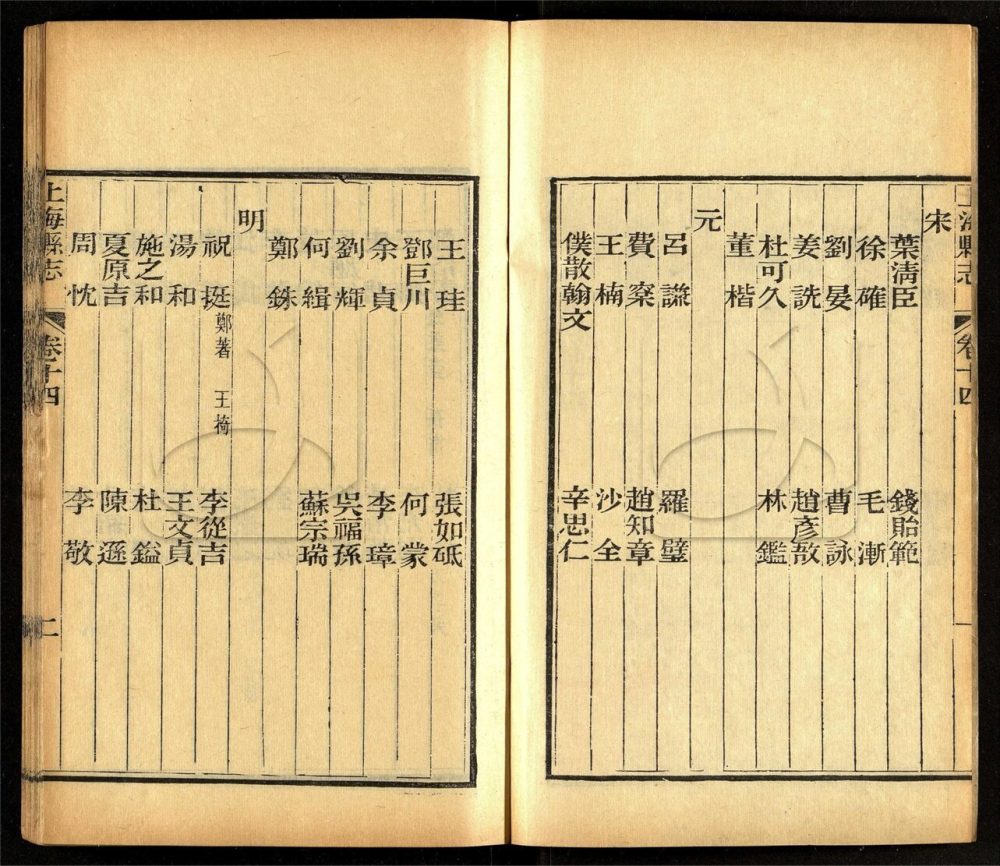 上海縣志 卷十四 一
宋
葉淸臣 錢貽範
徐確 毛漸
劉晏 曹詠
姜詵 趙彥敔
杜可久 林鑑
董楷
元
呂謙 羅璧
費寀 趙知章
王楠 沙全
僕散翰文 辛思仁
王珪 張如砥
鄧巨川 何蒙
余貞 李璋
劉輝 吳福孫
何緝 蘇宗瑞
鄭銖
明
祝挺 鄭著 王掎 李從吉
湯和 王文貞
施之和 杜鎰
夏原吉 陳遜
周忱 李敬
上海縣志 卷十四 二